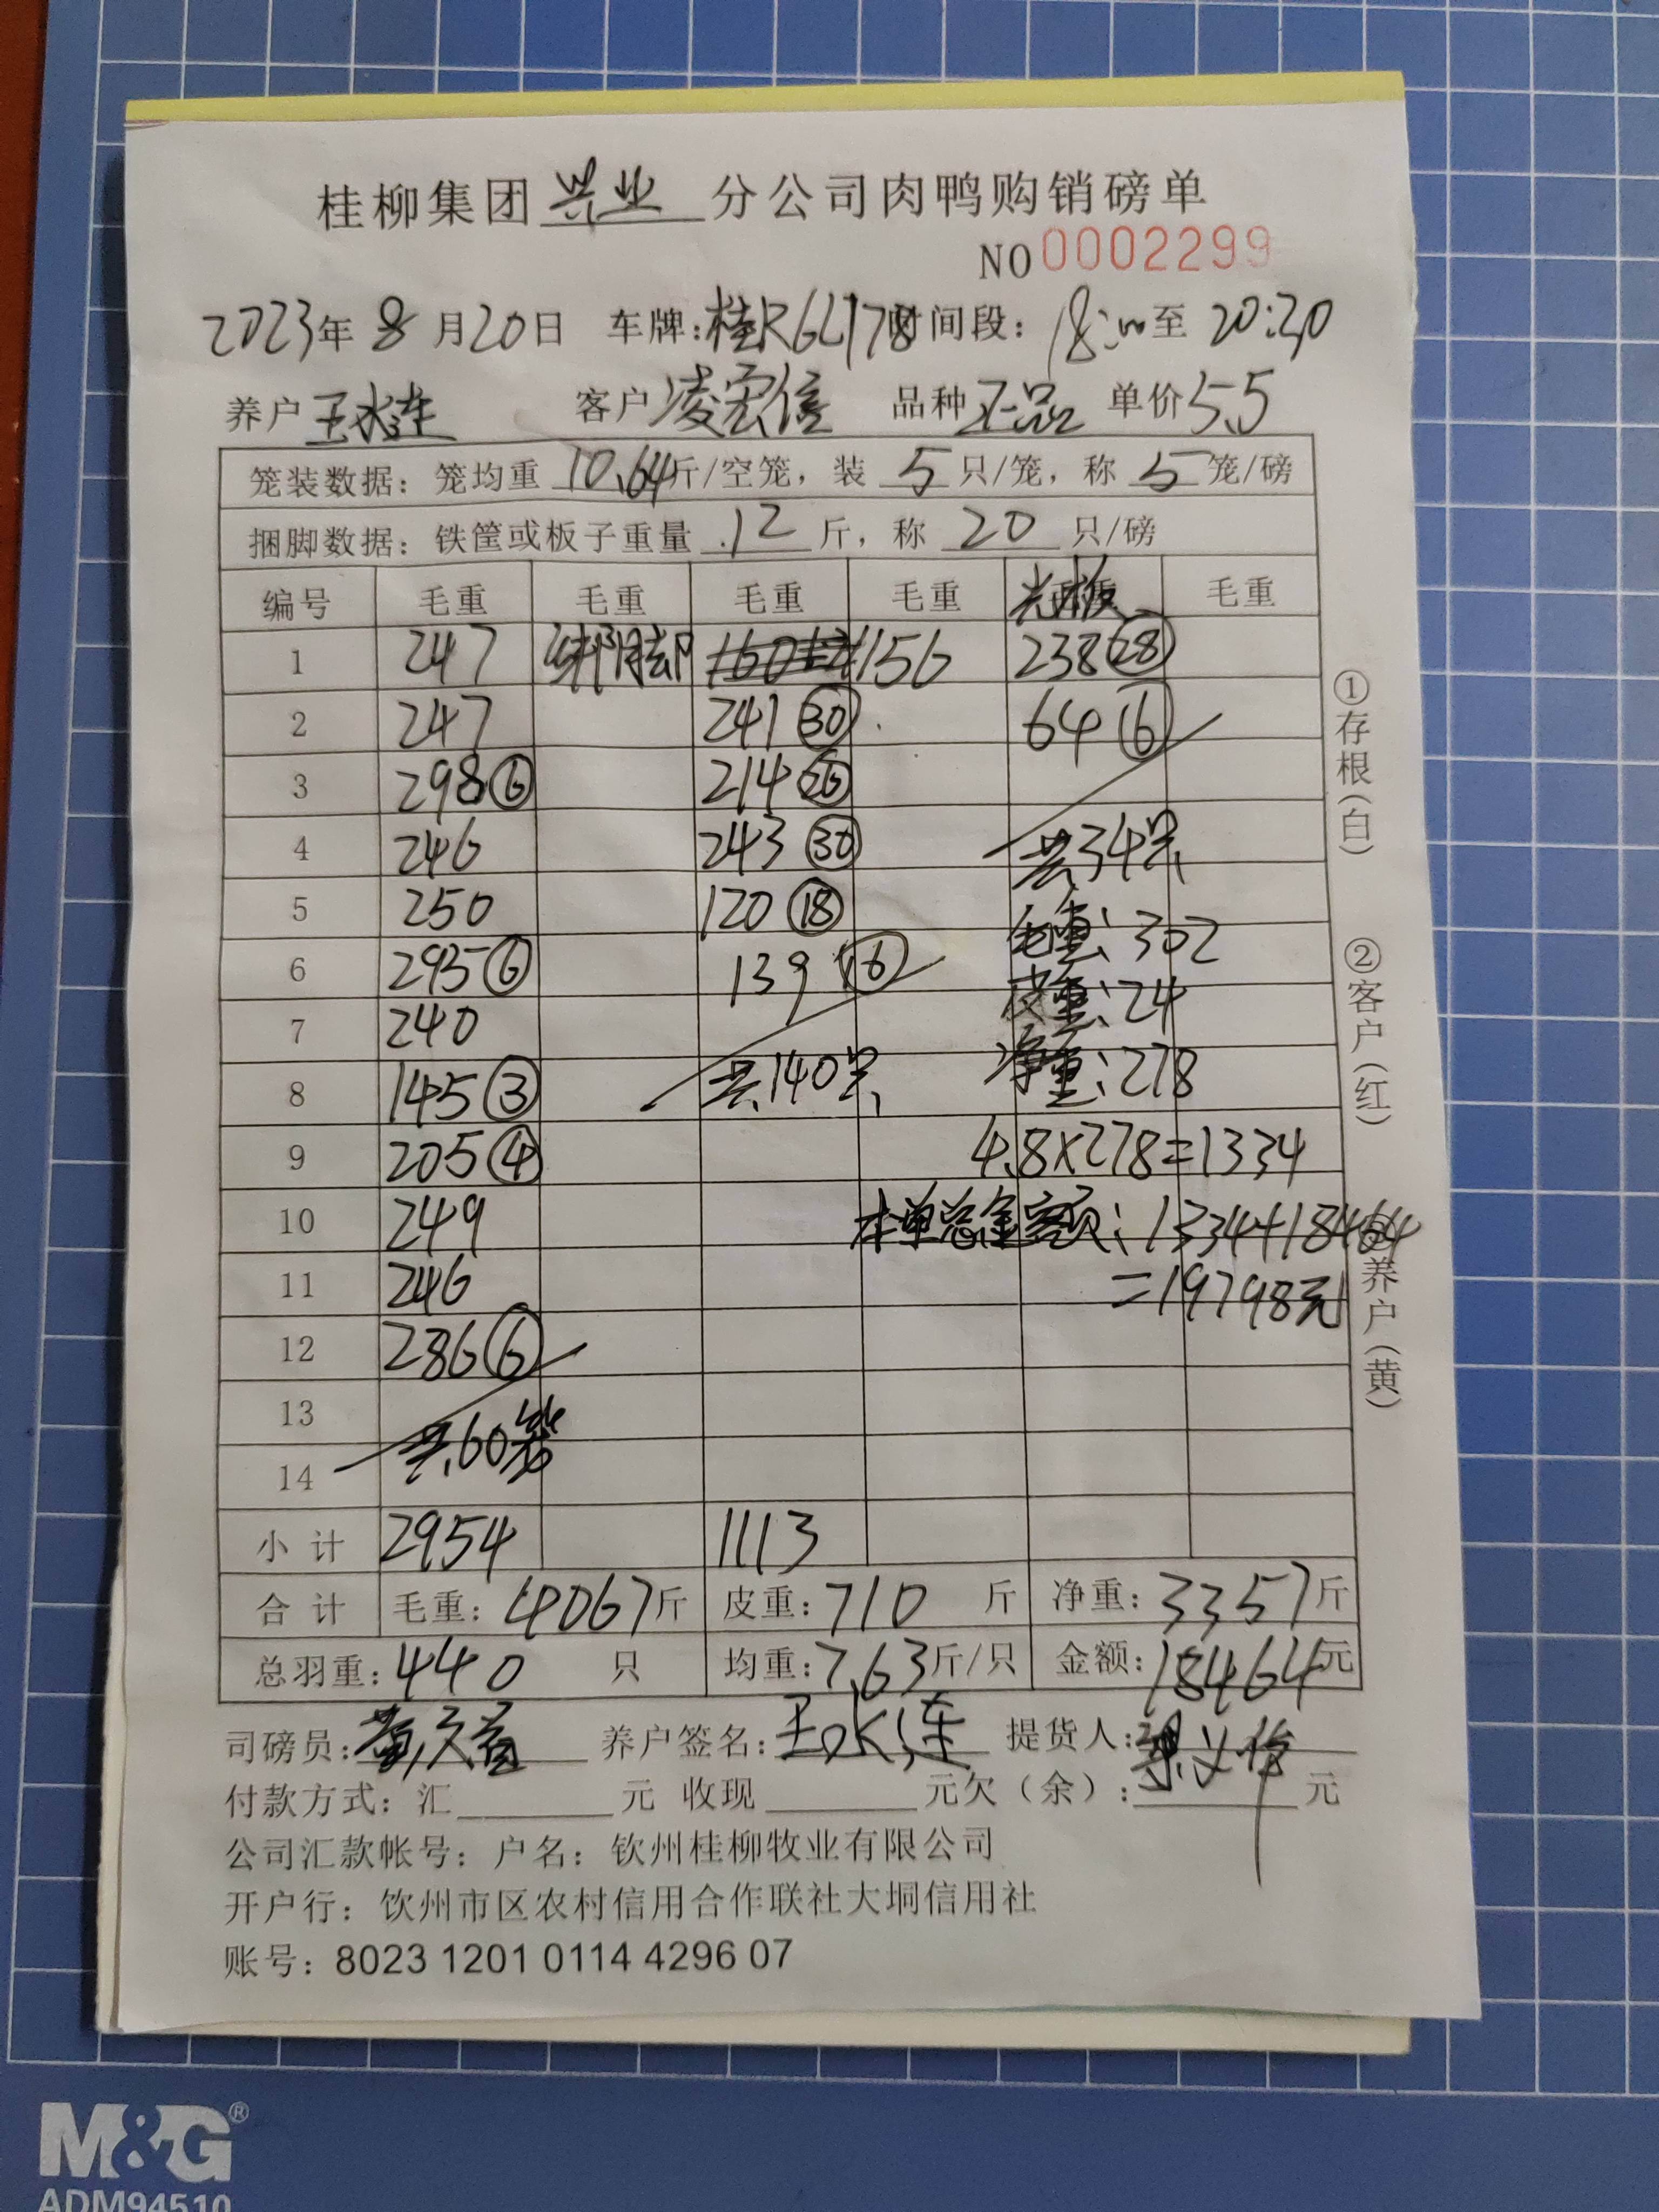 桂柳集团 兴业 分公司肉鸭购销磅单
NO 0002299
2023年 8 月20日 车牌:桂R6L178 时间段: 18:00至 20:30
养户 王水连 客户 凌宏信 品种 正品 单价 5.5
笼装数据: 笼均重 10.64斤/空笼, 装 5 只/笼, 称 5 笼/磅
捆脚数据: 铁筐或板子重量 .12 斤, 称 20 只/磅
编号 毛重 毛重 毛重 毛重 光板 毛重
1 247 156 238 28
2 247 241 30 64 6
3 298 6 214 26
4 246 243 30 共34只
5 250 120 18 毛重: 302
6 295 6 139 16 皮重: 24
7 240 净重: 278
8 145 3 共140只
9 205 4 4.8×278=1334
10 249 本单总金额: 1334+18464
11 246 =19798元
12 286 6
13 共60笼
14
小计 2954 1113
合计 毛重: 4067斤 皮重: 710 斤 净重: 3357斤
总羽重: 440 只 均重: 7.63斤/只 金额: 18464元
司磅员: 养户签名: 王水连 提货人:
付款方式: 汇 元 收现 元欠(余): 元
公司汇款帐号: 户名: 钦州桂柳牧业有限公司
开户行: 钦州市区农村信用合作联社大垌信用社
账号: 8023 1201 0114 4296 07
①存根(白)
②客户(红)
③养户(黄)
M&G®
ADM94510